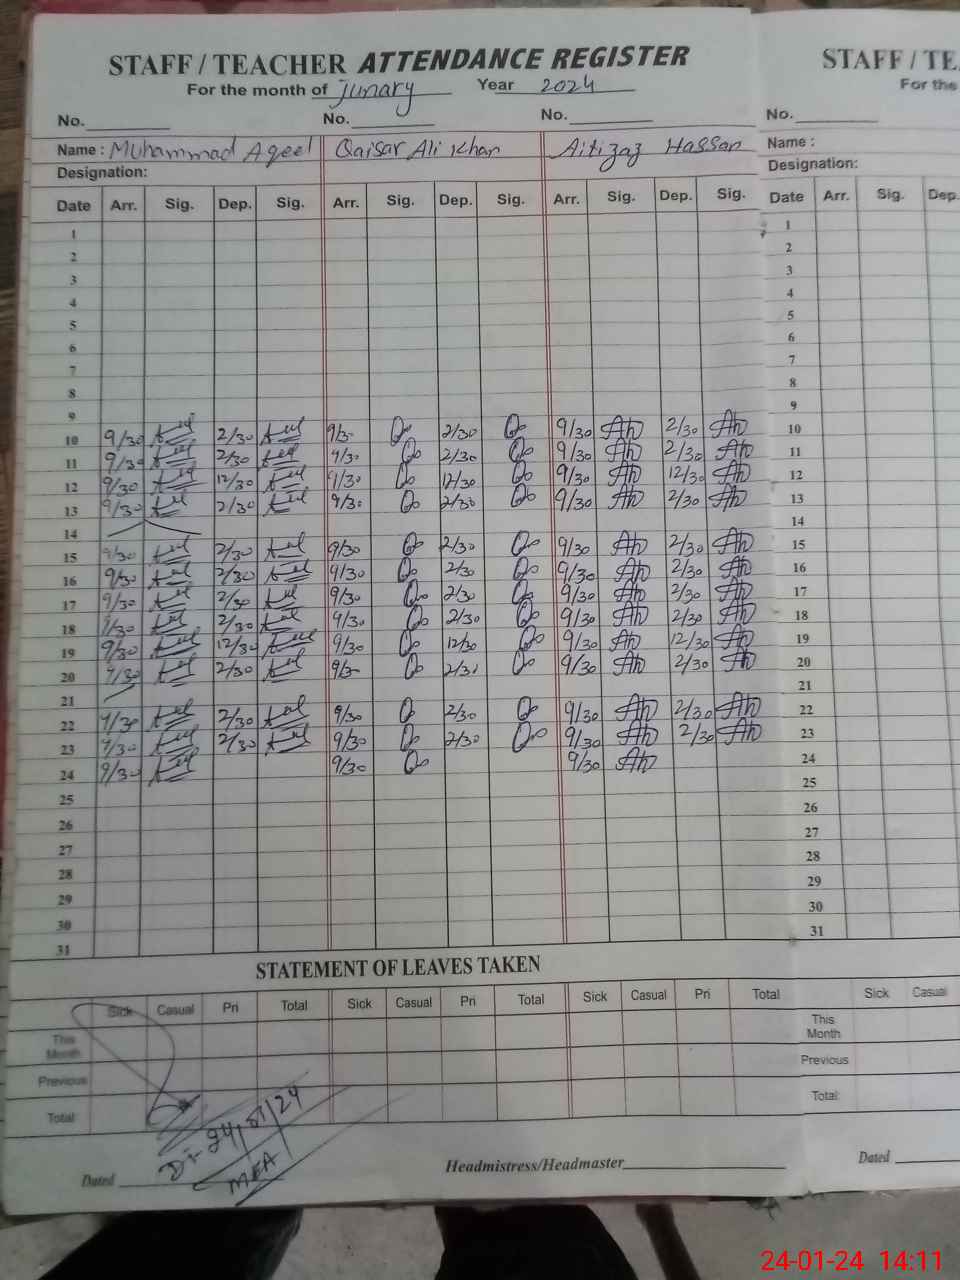 STAFF / TEACHER ATTENDANCE REGISTER
For the month of junary Year 2024
No. No. No.
Name : Muhammad Aqeel Qaisar Ali Khan Aitizaz Hassan
Designation:
Date Arr. Sig. Dep. Sig. Arr. Sig. Dep. Sig. Arr. Sig. Dep. Sig.
1
2
3
4
5
6
7
8
9
10 9/30 2/30 9/30 2/30 9/30 Ah 2/30 Ah
11 9/30 2/30 9/30 2/30 9/30 Ah 2/30 Ah
12 9/30 12/30 9/30 12/30 9/30 Ah 12/30 Ah
13 9/30 2/30 9/30 2/30 9/30 Ah 2/30 Ah
14
15 9/30 2/30 9/30 2/30 9/30 Ah 2/30 Ah
16 9/30 2/30 9/30 2/30 9/30 Ah 2/30 Ah
17 9/30 2/30 9/30 2/30 9/30 Ah 2/30 Ah
18 9/30 2/30 9/30 2/30 9/30 Ah 2/30 Ah
19 9/30 12/30 9/30 12/30 9/30 Ah 12/30 Ah
20 9/30 2/30 9/30 2/30 9/30 Ah 2/30 Ah
21
22 9/30 2/30 9/30 2/30 9/30 Ah 2/30 Ah
23 9/30 2/30 9/30 2/30 9/30 Ah 2/30 Ah
24 9/30 9/30 9/30 Ah
25
26
27
28
29
30
31
STATEMENT OF LEAVES TAKEN
Sick Casual Pri Total Sick Casual Pri Total Sick Casual Pri Total
This Month
Previous
Total
Dt- 24/01/24
MEA
Dated Headmistress/Headmaster
STAFF / TEA
For the
No.
Name :
Designation:
Date Arr. Sig. Dep.
1
2
3
4
5
6
7
8
9
10
11
12
13
14
15
16
17
18
19
20
21
22
23
24
25
26
27
28
29
30
31
Sick Casual
This Month
Previous
Total
Dated
24-01-24 14:11